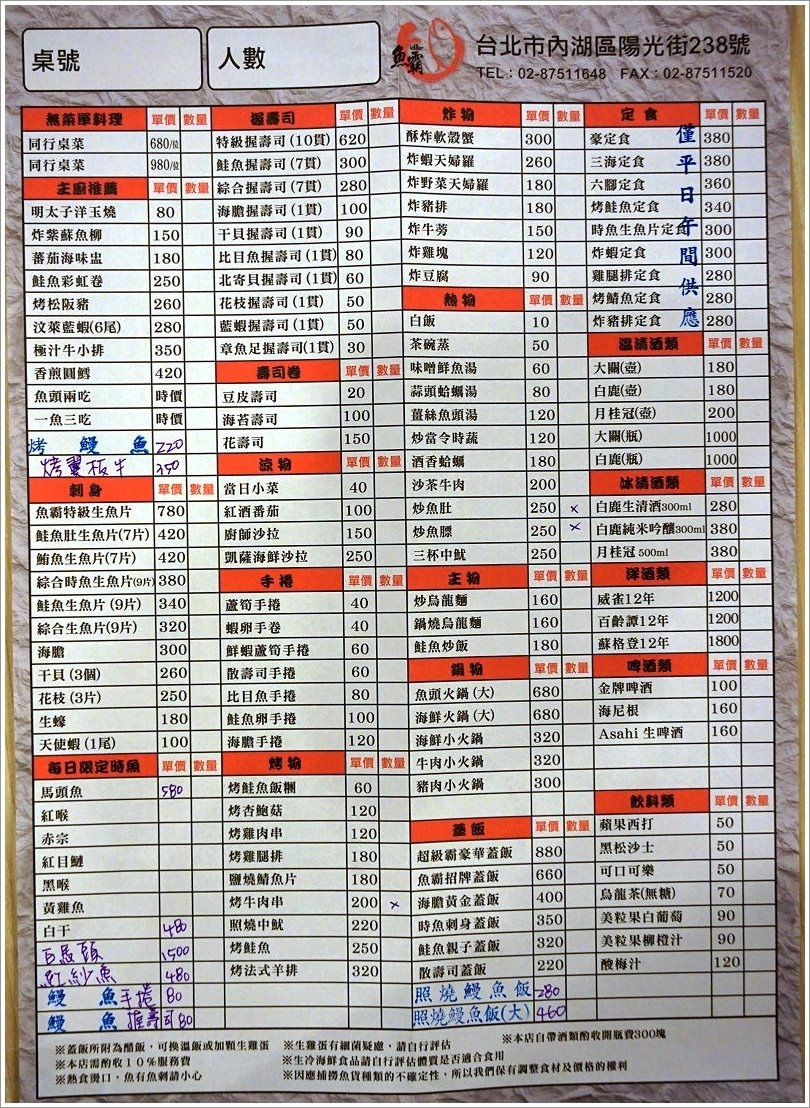 桌號
人數
魚霸
台北市內湖區陽光街238號
TEL：02-87511648 FAX：02-87511520
無菜單料理 單價 數量
同行桌菜 680/位
同行桌菜 980/位
主廚推薦 單價 數量
明太子洋玉燒 80
炸紫蘇魚柳 150
蕃茄海味盅 180
鮭魚彩虹卷 250
烤松阪豬 260
汶萊藍蝦(6尾) 280
極汁牛小排 350
香煎圓鱈 420
魚頭兩吃 時價
一魚三吃 時價
烤鰻魚 220
烤翼板牛 350
刺身 單價 數量
魚霸特級生魚片 780
鮭魚肚生魚片(7片) 420
鮪魚生魚片(7片) 420
綜合時魚生魚片(9片) 380
鮭魚生魚片(9片) 340
綜合生魚片(9片) 320
海膽 300
干貝(3個) 260
花枝(3片) 250
生蠔 180
天使蝦(1尾) 100
每日限定時魚 單價 數量
馬頭魚 580
紅喉
赤宗
紅目鰱
黑喉
黃雞魚
白干 480
白馬頭 1500
紅紗魚 480
鰻魚手捲 80
鰻魚握壽司 80
握壽司 單價 數量
特級握壽司(10貫) 620
鮭魚握壽司(7貫) 300
綜合握壽司(7貫) 280
海膽握壽司(1貫) 100
干貝握壽司(1貫) 90
比目魚握壽司(1貫) 80
北寄貝握壽司(1貫) 60
花枝握壽司(1貫) 50
藍蝦握壽司(1貫) 50
章魚足握壽司(1貫) 30
壽司卷 單價 數量
豆皮壽司 20
海苔壽司 100
花壽司 150
涼物 單價 數量
當日小菜 40
紅酒番茄 100
廚師沙拉 150
凱薩海鮮沙拉 250
手捲 單價 數量
蘆筍手捲 40
蝦卵手卷 40
鮮蝦蘆筍手捲 60
散壽司手捲 60
比目魚手捲 80
鮭魚卵手捲 100
海膽手捲 120
烤物 單價 數量
烤鮭魚飯糰 60
烤杏鮑菇 120
烤雞肉串 120
烤雞腿排 180
鹽燒鯖魚片 180
烤牛肉串 200 ×
照燒中魷 220
烤鮭魚 250
烤法式羊排 320
炸物 單價 數量
酥炸軟殼蟹 300
炸蝦天婦羅 260
炸野菜天婦羅 180
炸豬排 180
炸牛蒡 150
炸雞塊 120
炸豆腐 90
熱物 單價 數量
白飯 10
茶碗蒸 50
味噌鮮魚湯 60
蒜頭蛤蜊湯 80
薑絲魚頭湯 120
炒當令時蔬 120
酒香蛤蠣 180
沙茶牛肉 200
炒魚肚 250 ×
炒魚膘 250 ×
三杯中魷 250
主物 單價 數量
炒烏龍麵 160
鍋燒烏龍麵 160
鮭魚炒飯 180
鍋物 單價 數量
魚頭火鍋(大) 680
海鮮火鍋(大) 680
海鮮小火鍋 320
牛肉小火鍋 320
豬肉小火鍋 300
蓋飯 單價 數量
超級霸豪華蓋飯 880
魚霸招牌蓋飯 660
海膽黃金蓋飯 400
時魚刺身蓋飯 350
鮭魚親子蓋飯 320
散壽司蓋飯 220
照燒鰻魚飯 280
照燒鰻魚飯(大) 460
定食 單價 數量
豪定食 380
三海定食 380
六腳定食 360
烤鮭魚定食 340
時魚生魚片定食 300
炸蝦定食 300
雞腿排定食 280
烤鯖魚定食 280
炸豬排定食 280
僅平日午間供應
溫清酒類 單價 數量
大關(壺) 180
白鹿(壺) 180
月桂冠(壺) 200
大關(瓶) 1000
白鹿(瓶) 1000
冰清酒類 單價 數量
白鹿生清酒300ml 280
白鹿純米吟釀300ml 380
月桂冠 500ml 380
洋酒類 單價 數量
威雀12年 1200
百齡譚12年 1200
蘇格登12年 1800
啤酒類 單價 數量
金牌啤酒 100
海尼根 160
Asahi 生啤酒 160
飲料類 單價 數量
蘋果西打 50
黑松沙士 50
可口可樂 50
烏龍茶(無糖) 70
美粒果白葡萄 90
美粒果柳橙汁 90
酸梅汁 120
※蓋飯所附為醋飯，可換溫飯或加顆生雞蛋 ※生雞蛋有細菌疑慮，請自行評估 ※本店自帶酒類酌收開瓶費300塊
※本店需酌收10%服務費 ※生冷海鮮食品請自行評估體質是否適合食用
※熱食燙口，魚有魚刺請小心 ※因應捕撈魚貨種類的不確定性，所以我們保有調整食材及價格的權利